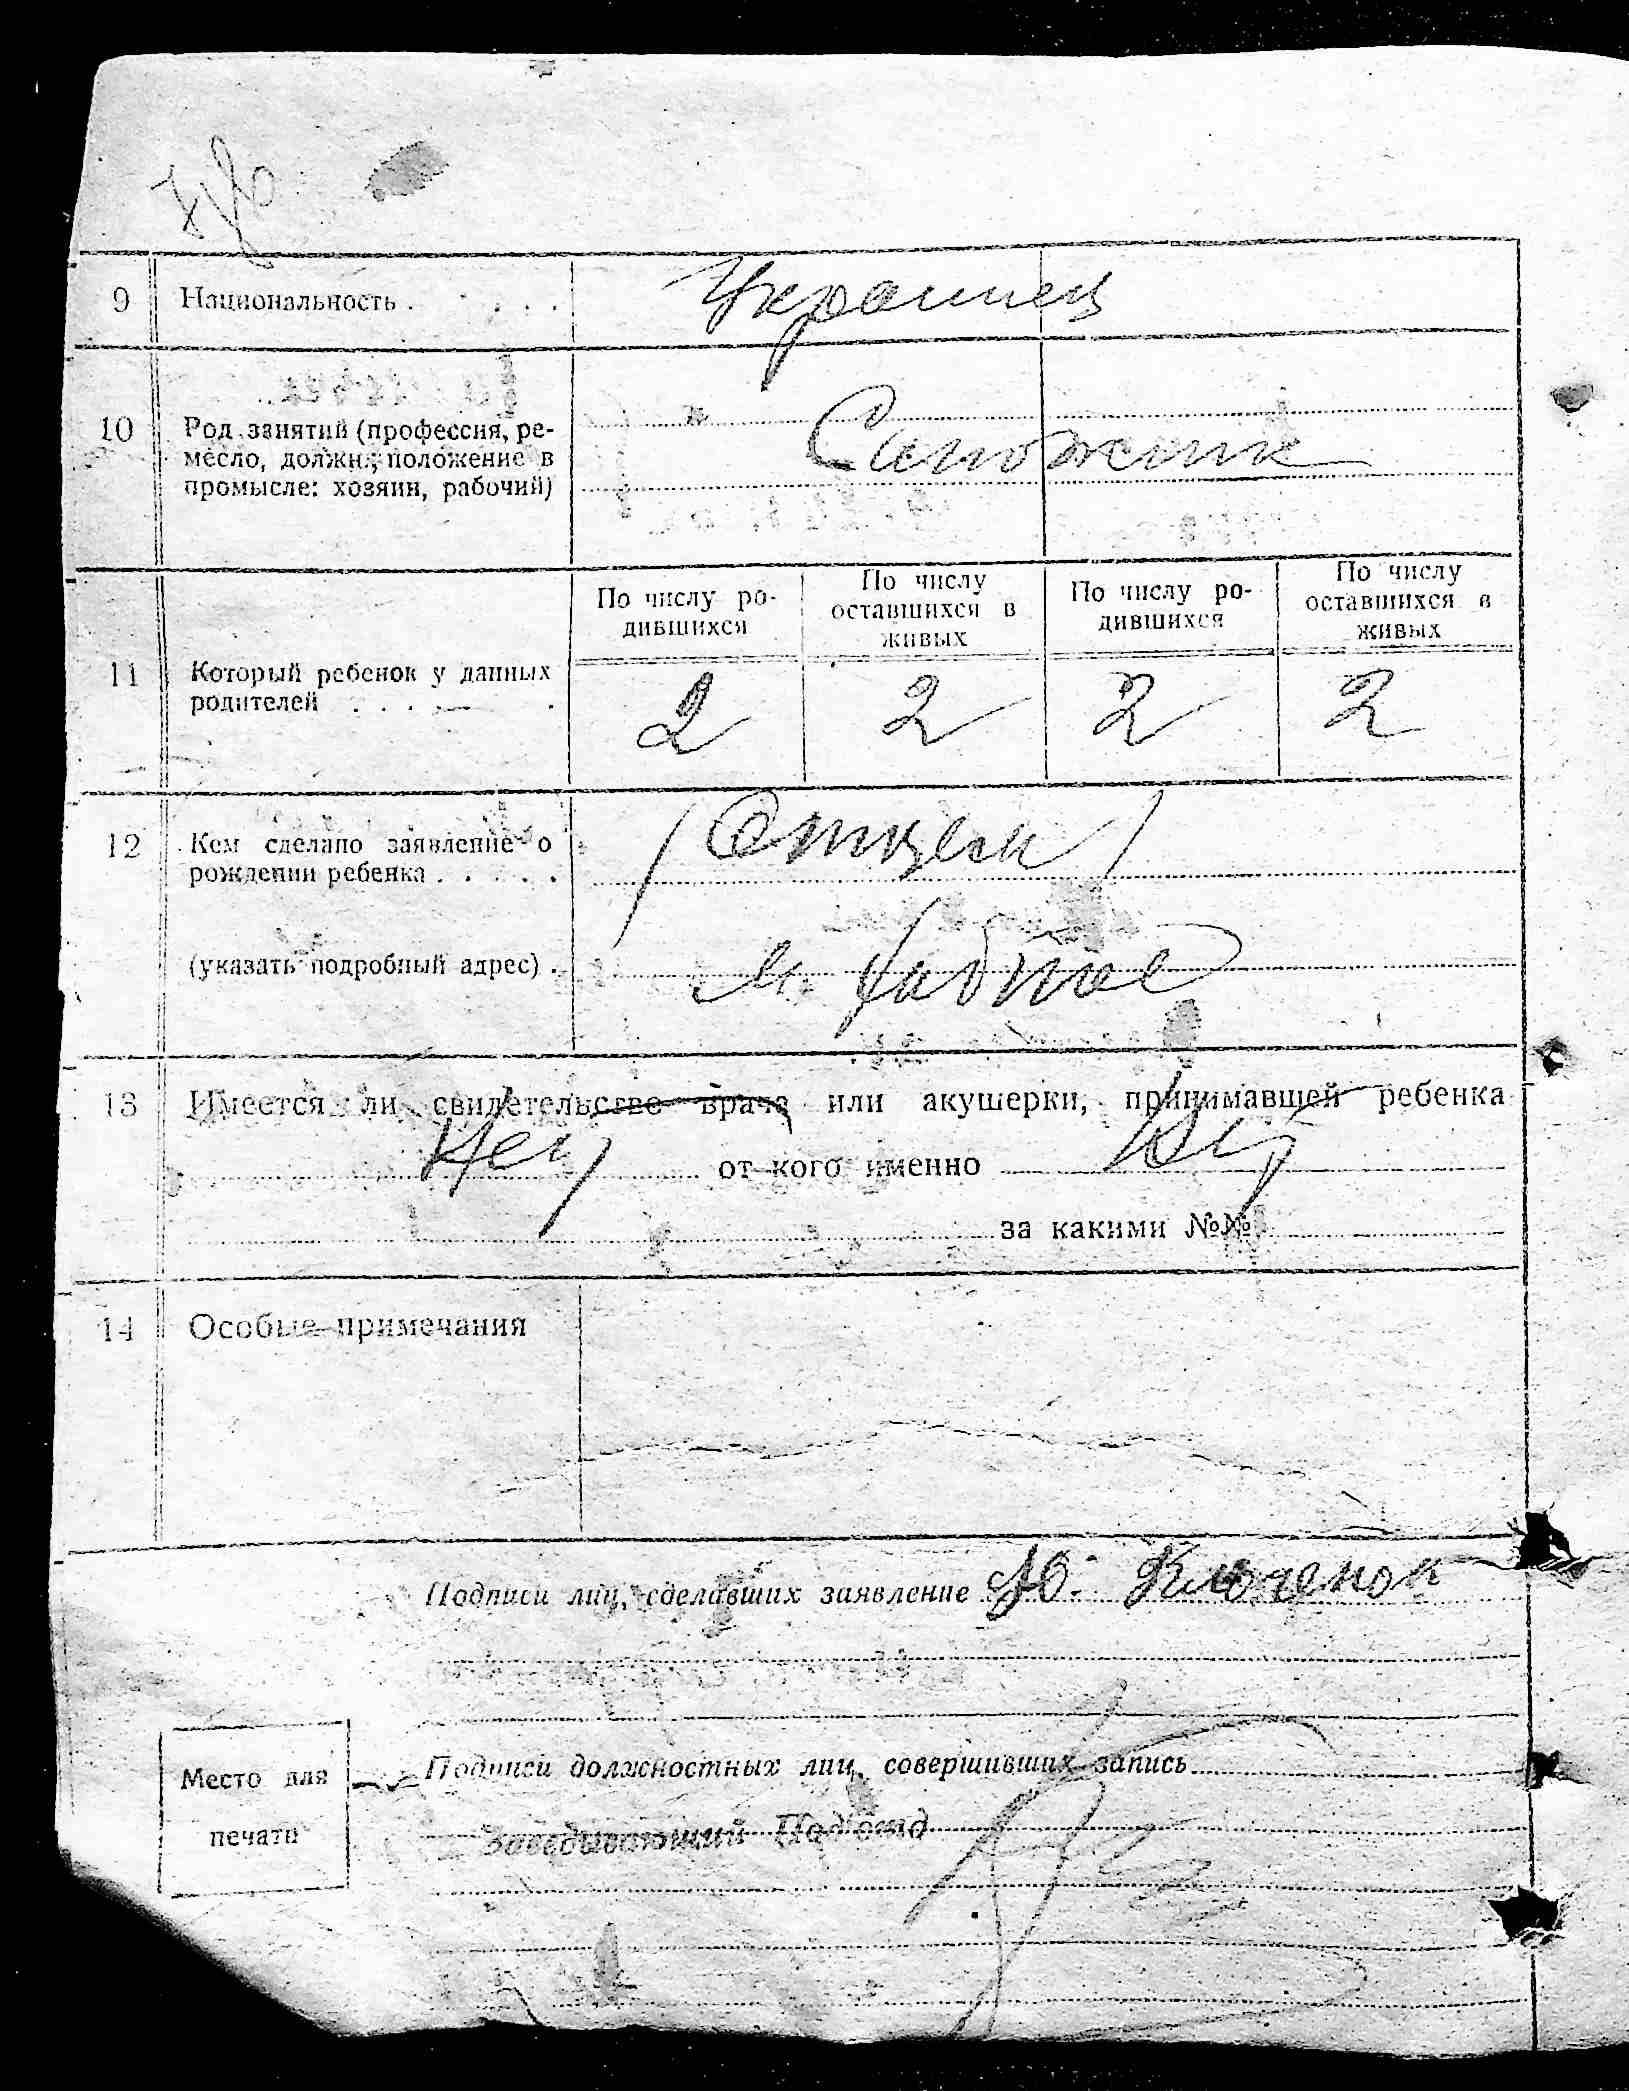 9 Национальность . . . . . Украинец
10 Род занятий (профессия, ре-
месло, должн., положение в
промысле: хозяин, рабочий)
Сапожник
По числу ро-
дившихся
По числу
оставшихся в
живых
По числу ро-
дившихся
По числу
оставшихся в
живых
11 Который ребенок у данных
родителей . . . . .
2 2 2 2
12 Кем сделано заявление о
рождении ребенка . . . . .
Отцем
(указать подробный адрес) .
м.
13 Имеется ли свидетельство врача или акушерки, принимавшей ребенка
Нет от кого именно Нет
за какими №№
14 Особые примечания
Подписи лиц, сделавших заявление Ю. Ключенок
Место для
печати
Подписи должностных лиц, совершивших запись
Заведывающий Под'отд